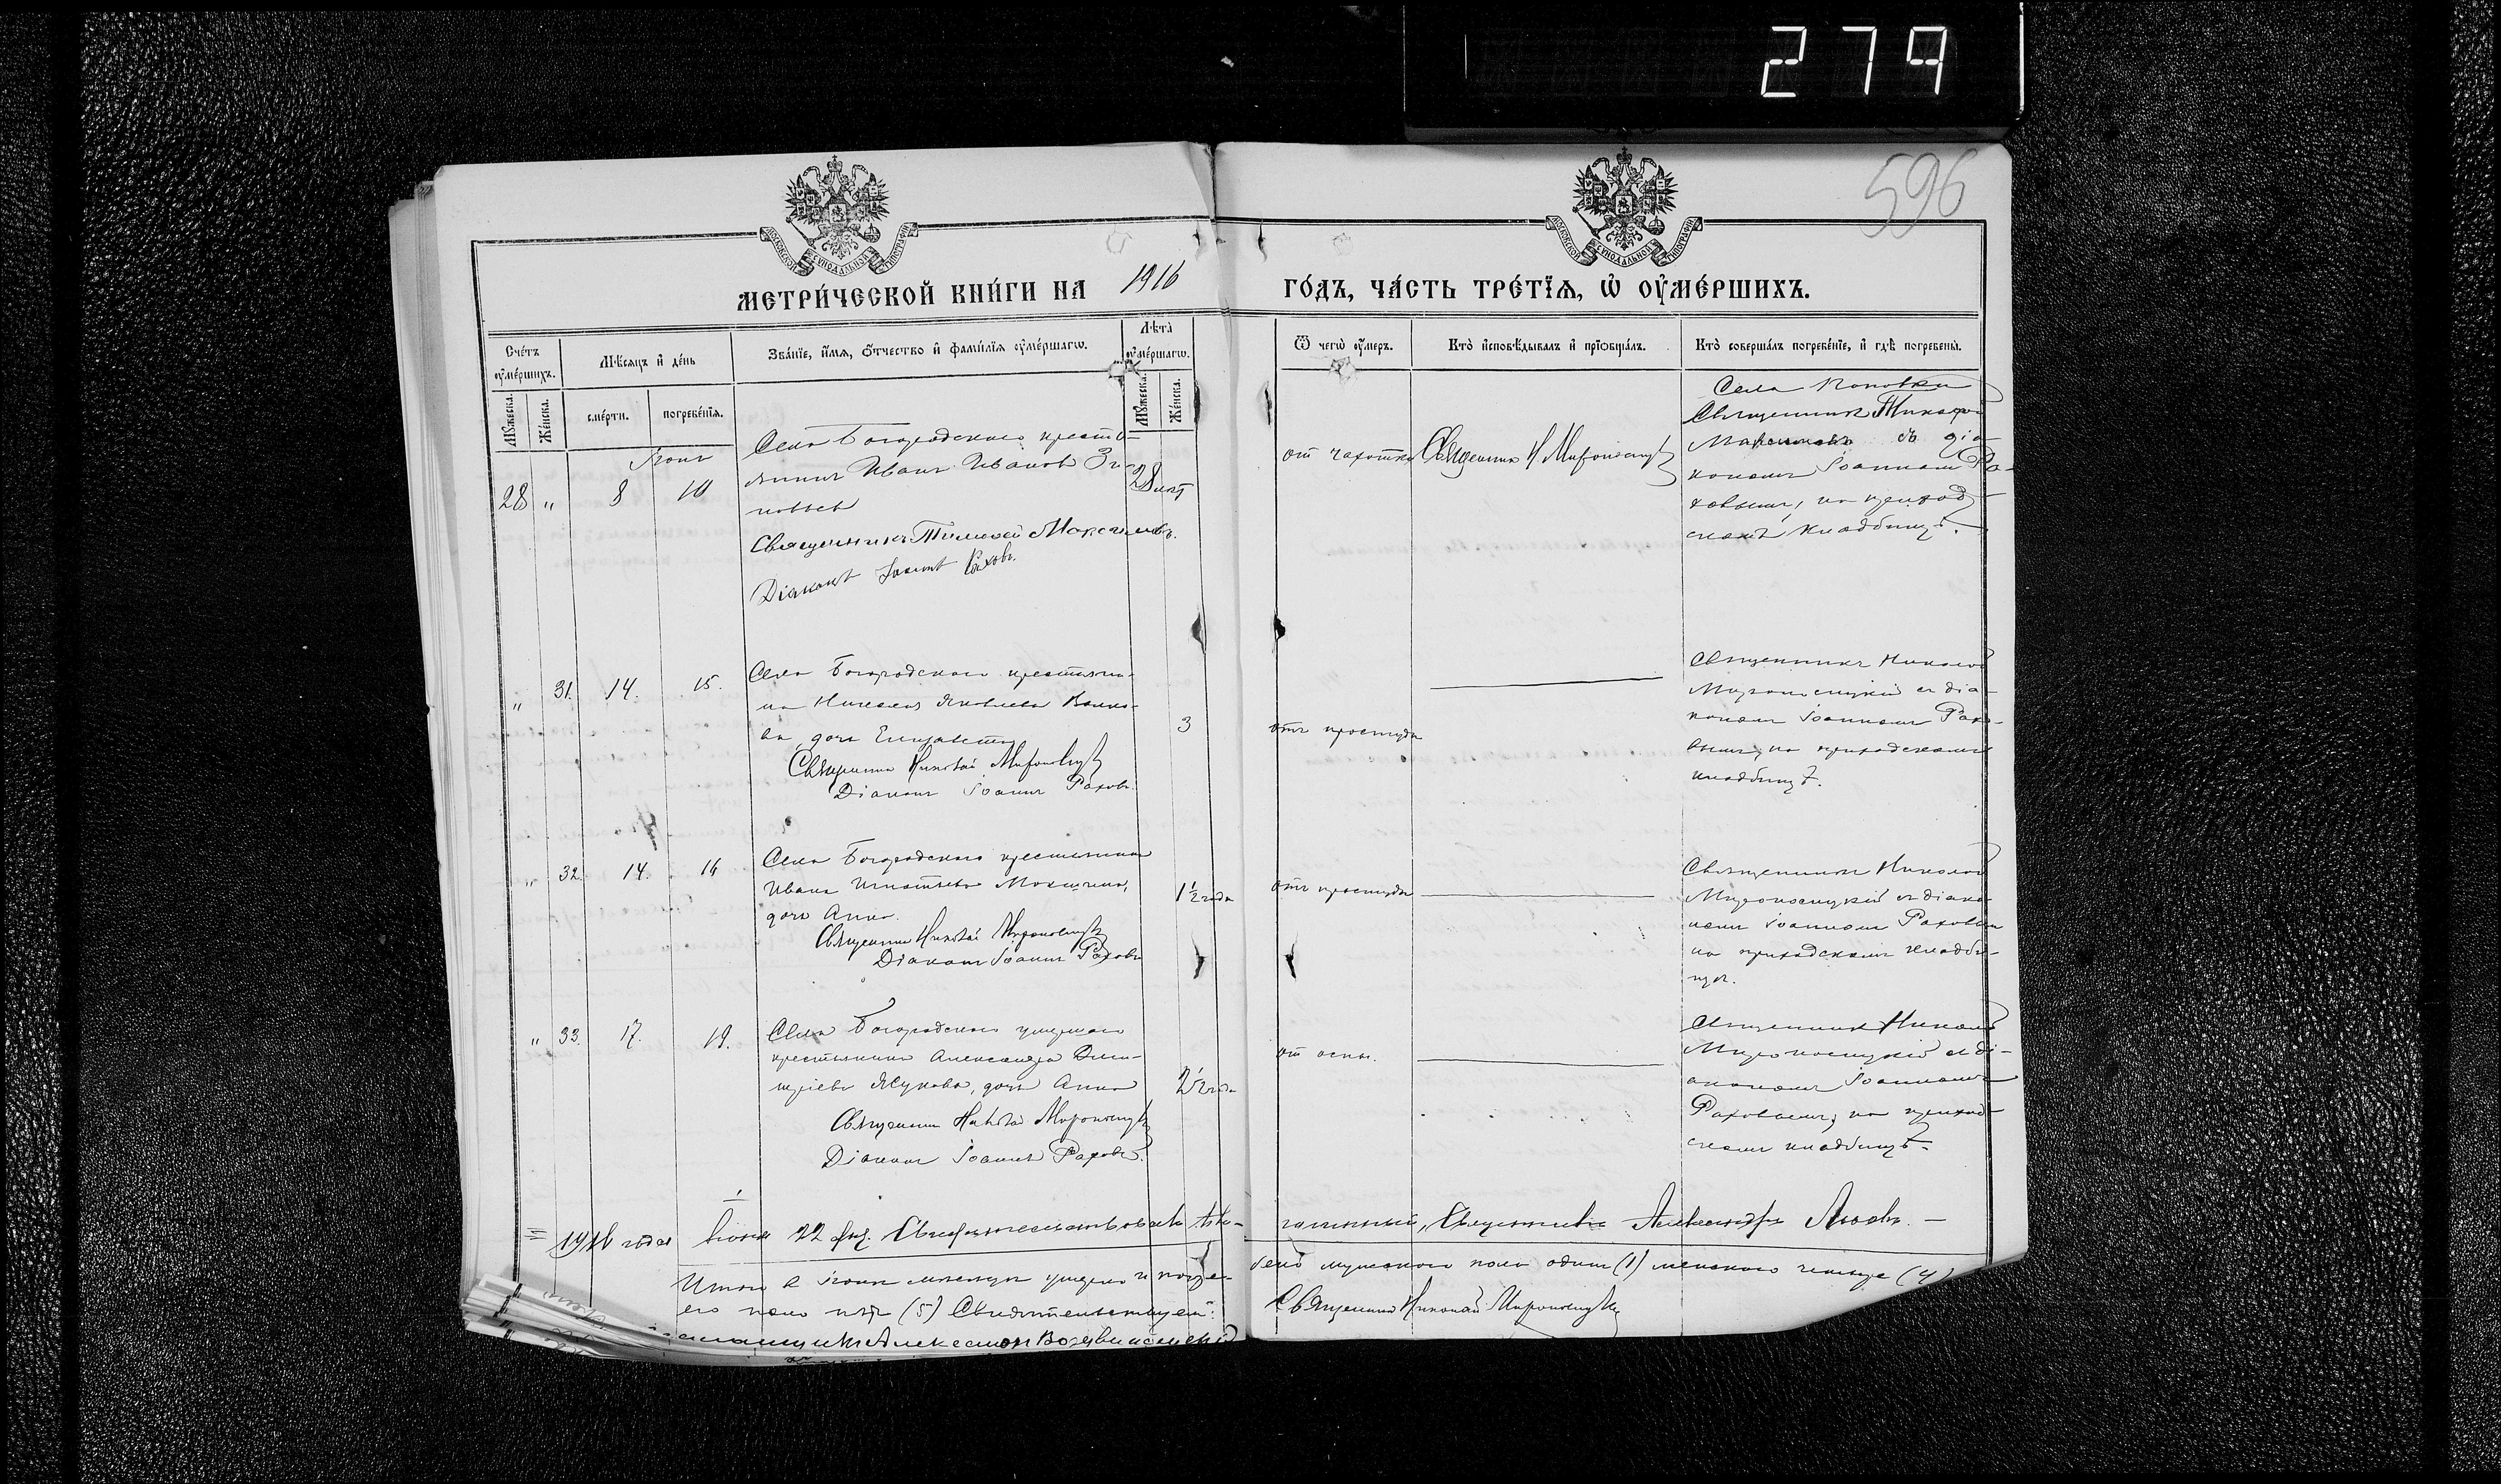 279
596
МОСКОВСКОЙ СѴНОДАЛЬНОЙ ТИПОГРАФІИ
МОСКОВСКОЙ СѴНОДАЛЬНОЙ ТИПОГРАФІИ
МЕТРИ́ЧЕСКОЙ КНИ́ГИ НА 1916 ГО́ДЪ, ЧА́СТЬ ТРЕ́ТЇѦ, Ѡ҆ ОУ҆МЕ́РШИХЪ.
Сче́тъ оу҆ме́ршихъ.
Мꙋ́жеска.
Же́нска.
Мѣ́сяцъ и҆ де́нь
сме́рти.
погребе́нїѧ.
Зва́нїе, и҆́мѧ, ѻ҆́тчество и҆ фами́лїѧ оу҆ме́ршагѡ.
Лѣ́та оу҆ме́ршагѡ.
Мꙋ́жеска.
Же́нска.
Ѿ чегѡ̀ оу҆́меръ.
Кто̀ и҆сповѣ́дывалъ и҆ прїѡбща́лъ.
Кто̀ соверша́лъ погребе́нїе, и҆ гдѣ̀ погребены̀.
Іюнь
28 " 8 10
Села Богородскаго кресть-
янинъ Иванъ Иванов Зи-
новьев
28 лѣт
Священникъ Тимофей Максимовъ.
Діаконъ Іоаннъ Раховъ.
от чахотки
Священник Н Мироносицкій
Села Поповки
Священник Тимофей
Максимовъ съ діа-
кономъ Іоанномъ Ра-
ховымъ, на приход-
скомъ кладбищѣ.
" 31. 14. 15.
Села Богородскаго крестьяни-
на Николая Яковлева Волко-
ва, дочь Елизавета
3
Священник Николай Мироносицкій
Діаконъ Іоаннъ Раховъ.
отъ простуды
Священникъ Николай
Мироносицкій съ діа-
кономъ Іоанномъ Рахо-
вымъ, на приходскомъ
кладбищѣ.
" 32. 14. 16
Села Богородскаго крестьянина
Ивана Игнатьева
дочь Анна.
1½ года
Священник Николай Мироносицкій
Діаконъ Іоаннъ Раховъ
отъ простуды
Священникъ Николай
Мироносицкій съ діако-
номъ Іоанномъ Раховым
на приходскомъ кладби-
щѣ.
" 33. 17. 19.
Села Богородскаго умершаго
крестьянина Александра Дими-
тріева дочь Анна
2½ года
Священник Николай Мироносицкій
Діаконъ Іоаннъ Раховъ.
от оспы.
Священникъ Николай
Мироносицкій съ ді-
акономъ Іоанномъ
Раховымъ, на приход-
скомъ кладбищѣ.
1916 года Іюня 22 дня. Свидѣтельствовалъ
Священникъ Александръ
Итого в Іюнѣ месяцѣ умерло и погре-
бено мужского пола один (1) женского четыре (4)
его пола пять (5) Свидѣтельствуем:
Священник Николай Мироносицкій